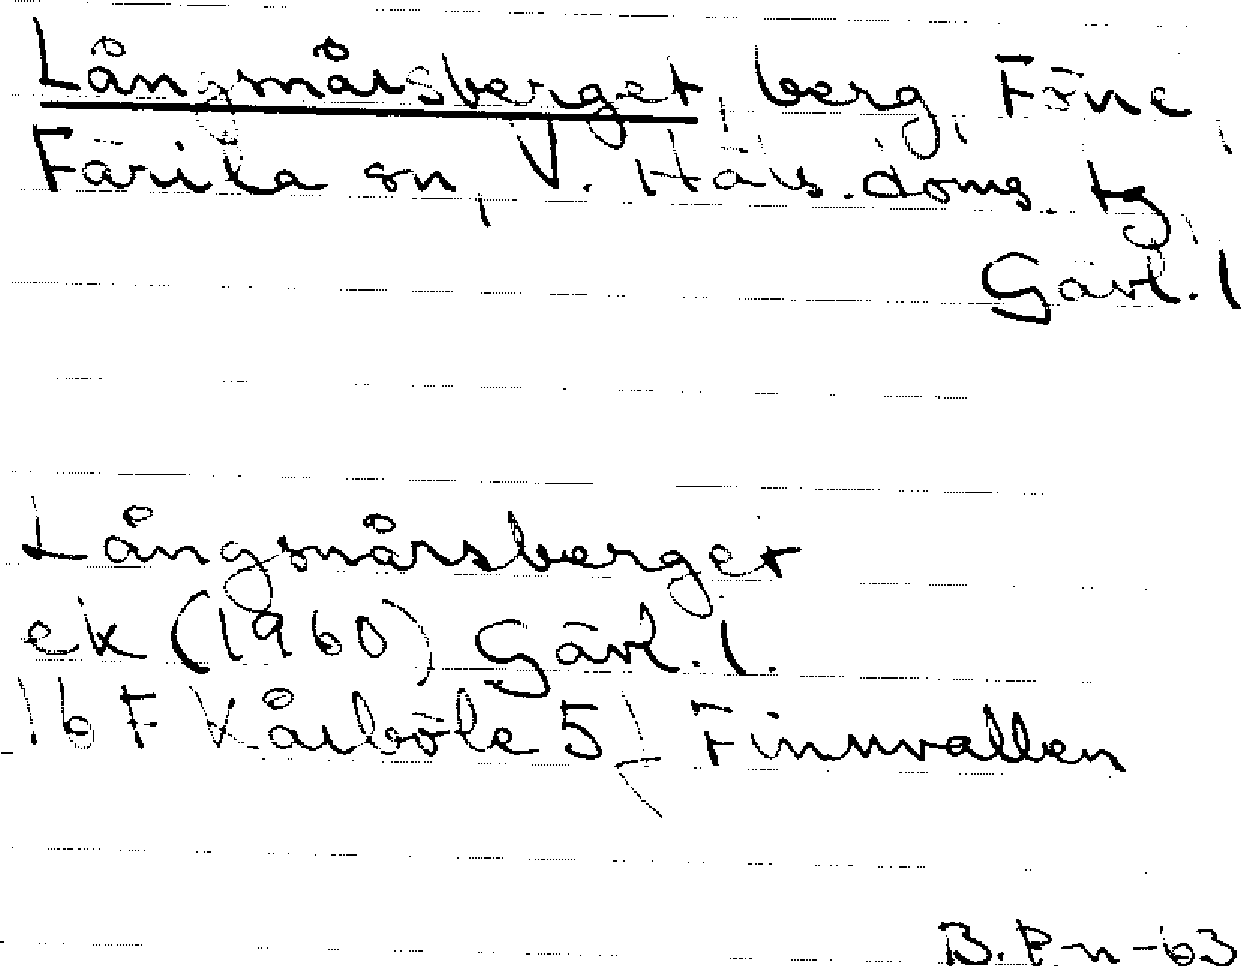 Långsmårsberget, berg, Föne,
Färila sn, V. Häls. doms. tg,
Gävl. l
Långsmårsberget
ek (1960) Gävl. l.
16 F Kårböle 5 Finnvallen
B. P-n -63